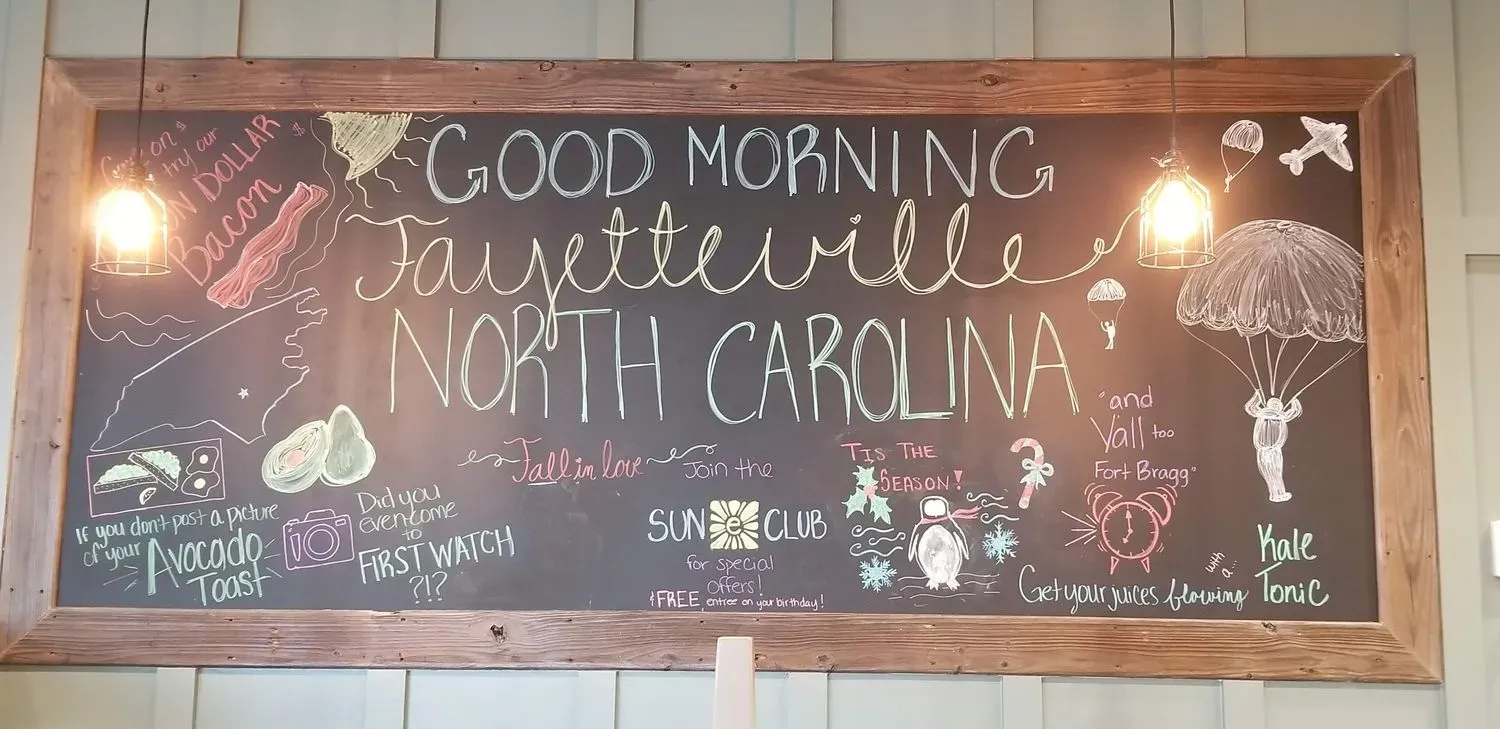 try our
DOLLAR
Bacon
GOOD MORNING
Fayetteville
NORTH CAROLINA
"and
Y'all too
Fort Bragg"
If you don't post a picture
of your Avocado
Toast
Did you
even come
to
FIRST WATCH
?!?
Fall in love
Join the
SUN e CLUB
for special
offers!
FREE entree on your birthday!
TIS THE
SEASON!
Get your juices flowing
with
a...
Kale
Tonic